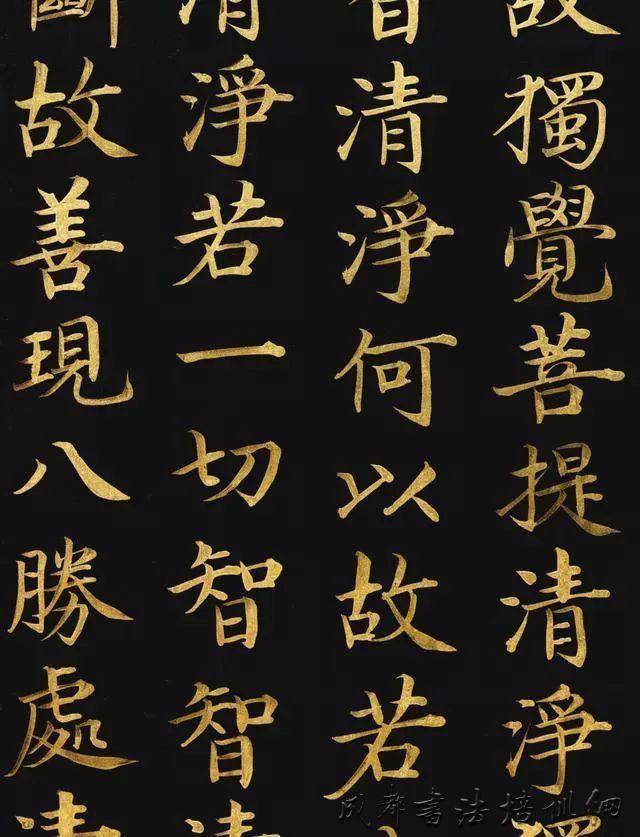 故獨覺菩提清淨
智清淨何以故若
清淨若一切智智清
斷故善現八勝處清
成都書法培训网